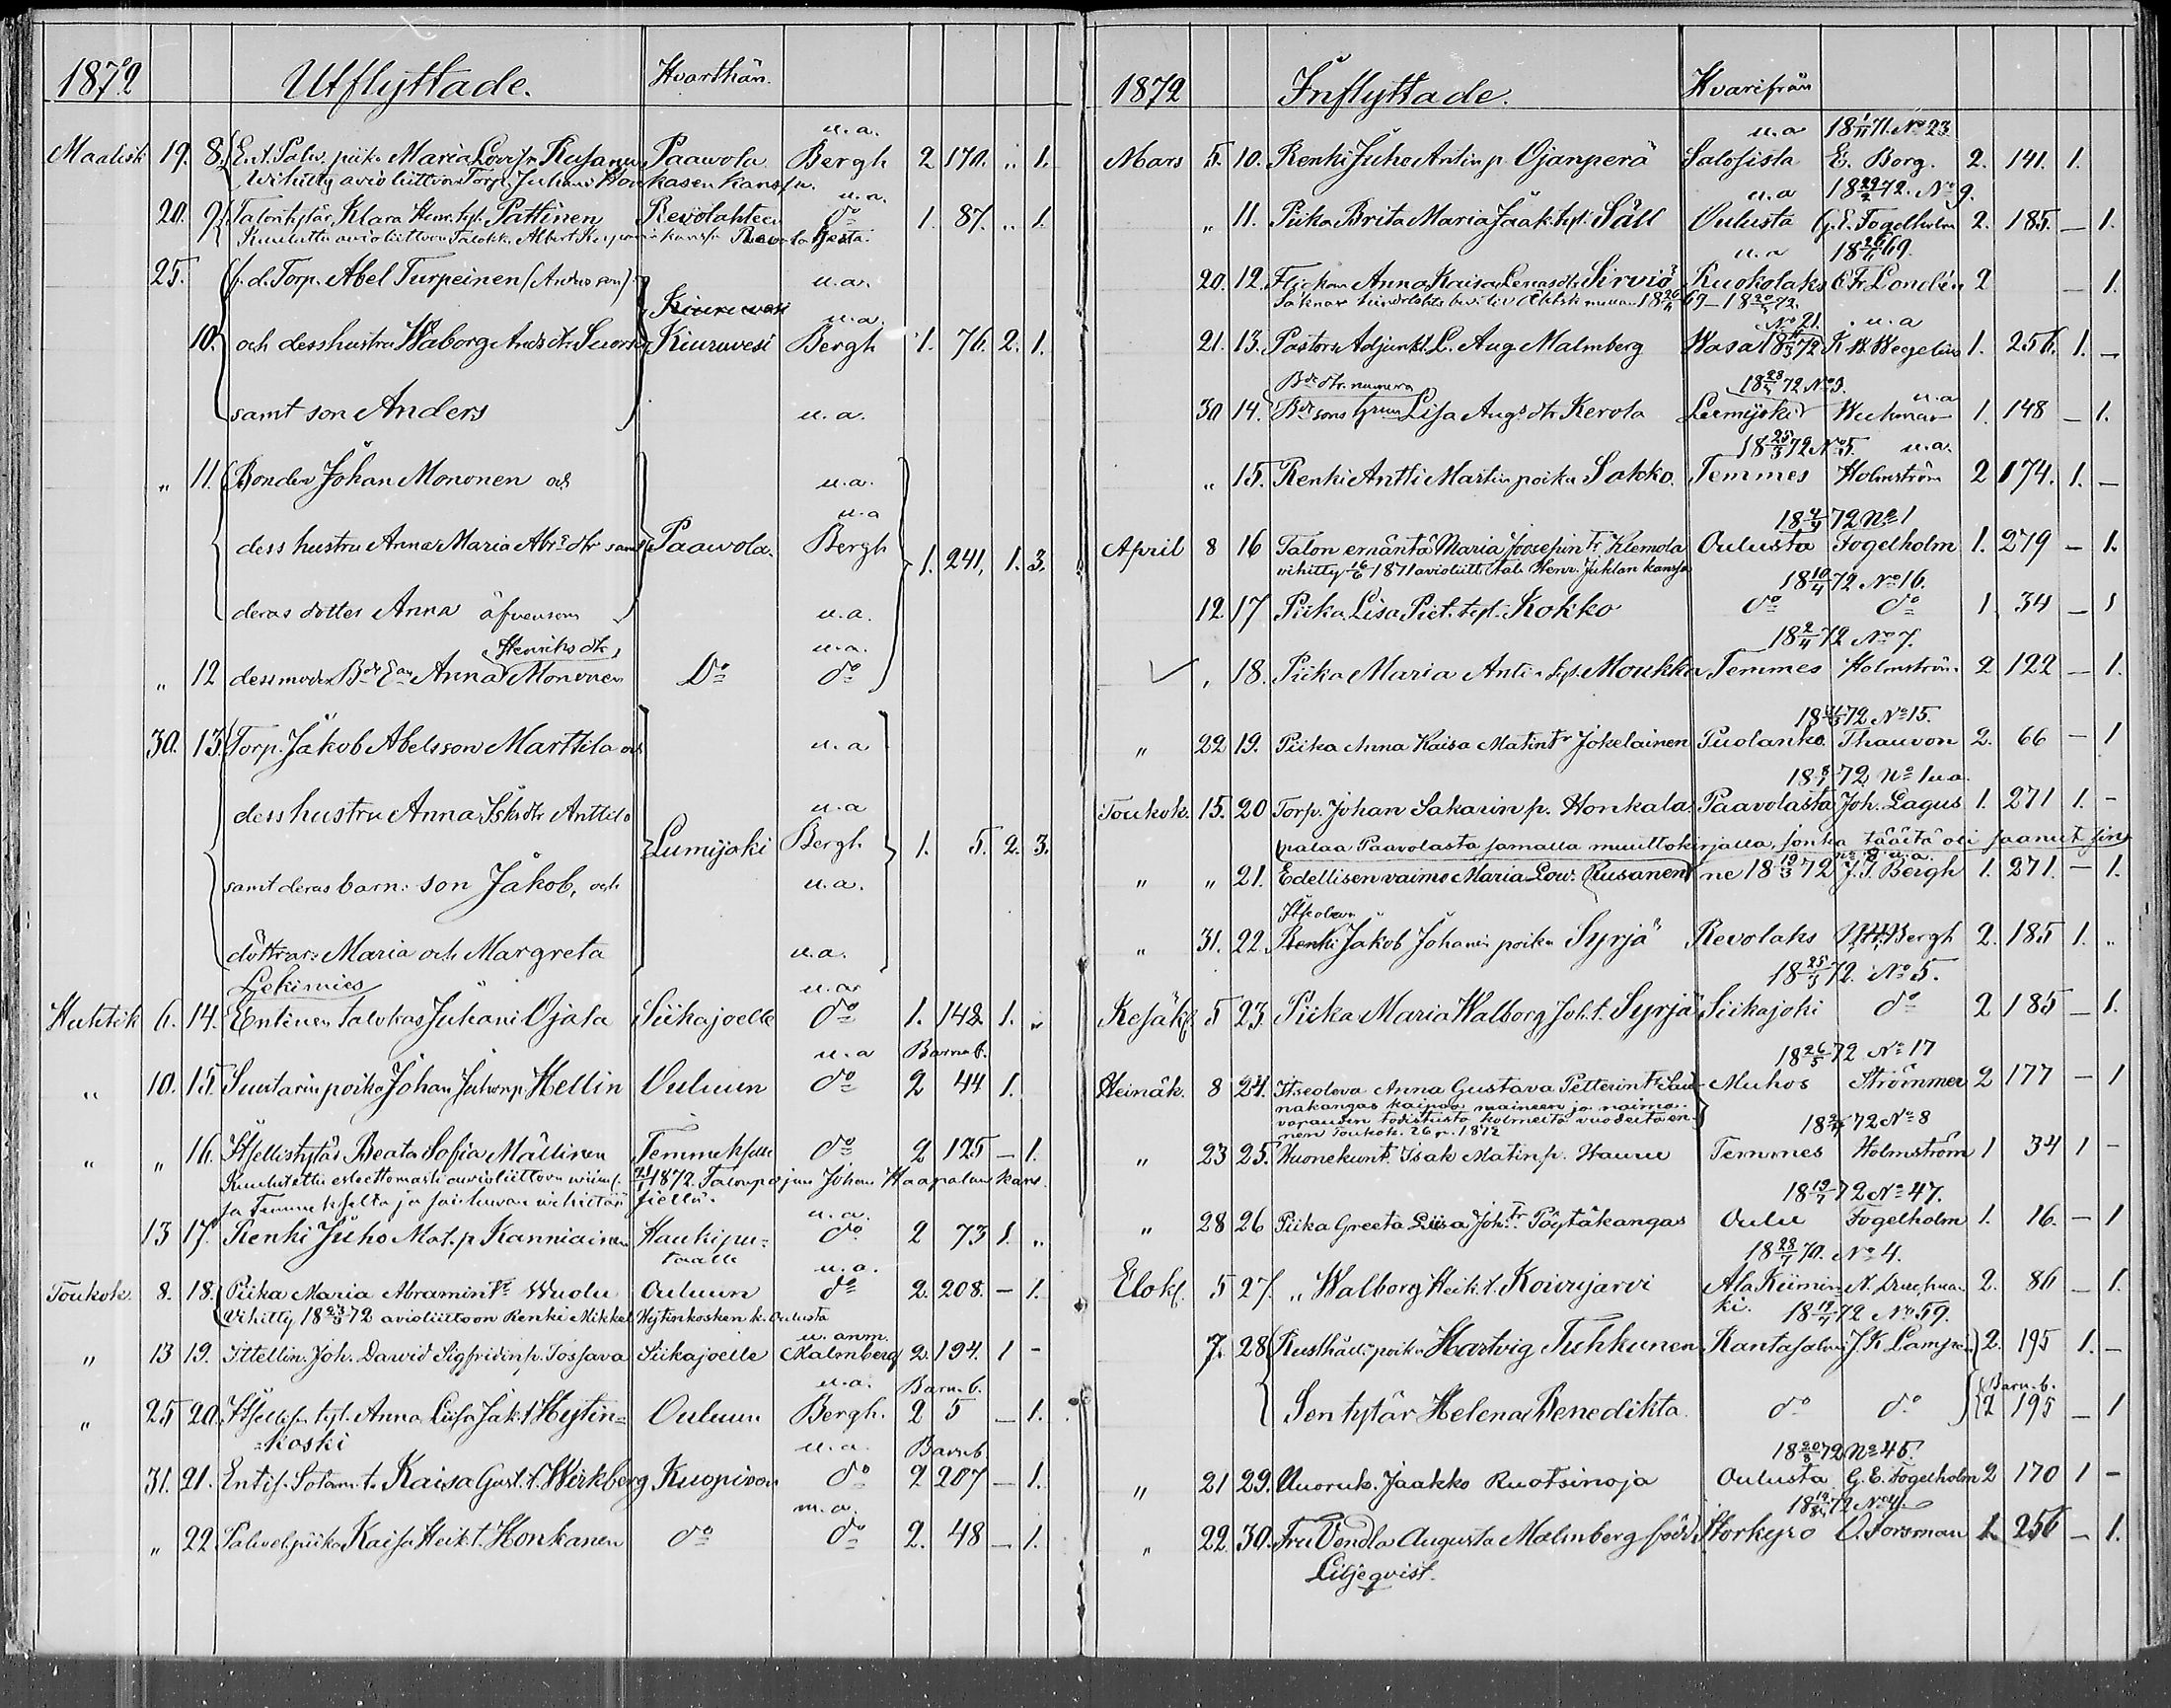 1872 Utflyttade. Hvarthän.
u.a.
Maalisk 19. 8. Ent. Palv. piika Maria Lovisa Rusanen Paawola Bergh 2 170. „ 1.
Wihitty avioliittoon Torp. Juhani Honkasen kanssa.
u.a.
20. 9. Talontytär, Klara Henr. tyt. Pattinen Revolahteen do 1. 87. „ 1.
Kuulutettu avioliittoon Talokk. Albert kanssa Revolahdesta.
25. f.d. Torp. Abel Turpeinen (Anders son) u.a.
Kiuruvesi
u.a.
10. och dess hustru Waborg Ands dtr Kiuruvesi Bergh 1. 76. 2. 1.
samt son Anders u.a.
„ 11. Bonden Johan Mononen och u.a.
u.a
dess hustru Anna Maria Abr. dtr samt Paawola. Bergh 1. 241, 1. 3.
deras dotter Anna äfvensom u.a.
Henriks dtr u.a.
„ 12 dess moder Bde Ean Anna Mononen Do do
30. 13. Torp. Jakob Abelsson Marttila och u.a
dess hustru Anna Isks dtr Anttila u.a
Lumijoki Bergh. 1. 5. 2. 3.
samt deras barn: son Jakob, och u.a.
döttrar: Maria och Margreta u.a.
Lekimies u.a
Huhtik 6. 14. Entinen talokas Juhani Ojala Siikajoelle do 1. 142 1. „
u.a Barnab.
„ 10. 15. Suutarin poika Johan Juhonp. Hellin Ouluun do 2 44 1.
„ „ 16. Itsellistytär Beata Sofia Mällinen Temmekselle do 2 125 – 1.
Kuulutettu esteettömasti avioliittoon viim. 21/1 1872. Talonpojan Johan Haapalan kans.
ja Temmekseltä ja saihuvan vihittää siellä.
u.a.
13 17. Renki Juho Mat. p. Kanniainen Haukipu= do 2 73 1. „
taalle
u.a.
Toukok. 8. 18. Piika Maria Abramintr Wuolu Ouluun do 2. 208. – 1.
Vihitty 18 23/3 72 avioliittoon Renki Mikkel Hytinkosken k. Oulusta
u. anm.
„ 13 19. Ittellin. Joh. Dawid Sigfridin p. Tossava Siikajoelle Malmberg 2. 194. 1 -
u.a. Barn. b.
„ 25 20. Itsellis. tyt. Anna Liisa Jak. t. Hytin= Ouluun Bergh. 2 5 – 1.
=koski
u.a. Barnb
31. 21. Entis. Sotam. t. Kaisa Gust. t. Wirkberg Kuopioon do 2 207 – 1.
m.a.
„ 22 Palvel. piika Kaisa Heik. t. Honkanen do do 2. 48 – 1.
1872 Inflyttade. Hvarifrån
u.a 18 1/11 71. No 23
Mars 5. 10. Renki Juho Antin p. Ojanperä Saloisista E. Borg. 2. 141. 1.
u.a 18 29/2 72. No 9.
„ 11. Piika Brita Maria Jaak. tyt. Säll Oulusta G. E. Fogelholm 2. 185. – 1.
u.a 18 26/4 69.
20. 12. Flickan Anna Kaisa Lenas dtr Sirviö Ruokolaks C. Fr. Londén 2 – 1.
69 – 18 20/3 72.
No 21. u.a
21. 13. Pastors Adjunkt L. Aug. Malmberg Wasa 18 11/3 72 K. W. Wegelius 1. 256. 1. –
Bde dtr. numera 18 28/3 72 No 3. u.a
30 14. Bde sons hru Lisa Augs dtr Kerola Lumijoki Weckman 1. 148 – 1.
18 25/3 72 No 5. u.a.
„ 15. Renki Antti Martin poika Sakko. Temmes Holmström 2 174. 1. –
18 4/4 72 No 1
April 8 16 Talon emäntä Maria Joosefin tr Klemola Oulusta Fogelholm 1. 279 – 1.
vihitty 16/6 1871 avioliitt. tal. Henr. Juklan kanssa
18 10/4 72 No 16.
12. 17 Piika Lisa Piet. tyt. Kokko do do 1. 34 – 1
18 2/4 72 No 7.
„ 18. Piika Maria Antin tyt. Moukka Temmes Holmström 2 122 – 1.
18 21/3 72 No 15.
„ 22 19. Piika Anna Kaisa Matintr Jokelainen Puolanko. Thauvon 2. 66 – 1
18 8/4 72 No 1 u.a.
Toukok. 15. 20 Torp. Johan Sakarin p. Honkala. Paavolasta Joh. Lagus 1. 271 1. -
palaa Paavolasta samalla muuttokirjalla, jonka täältä oli saanut sin
No 8 u.a.
„ „ 21. Edellisen vaimo Maria Low. Rusanen ne 18 19/3 72 J. F. Bergh 1. 271. – 1.
Itseoleva
„ 31. 22. Renki Jakob Johanin poika Syrjä Revolaks Bergh 2. 185 1. „
18 25/5 72. No 5.
Kesäk. 5 23. Piika Maria Walborg Joh. t. Syrjä Siikajoki do 2 185 – 1.
18 26/5 72 No 17
Heinäk. 8 24. Itseoleva Anna Gustava Petterintr Sau- Muhos Strömmer 2 177 – 1
nakangas kaipaa maineen ja naima-
varauden todistusta kolmelta vuodelta en-
nen Toukok. 26 p. 1872
18 2/7 72 No 8
„ 23 25. Huonekunt. Isak Matin p. Hannu Temmes Holmström 1 34 1 –
18 19/7 72 No 47.
„ 28 26 Piika Greeta Liisa Joh. tr Pöytäkangas Oulu Fogelholm 1. 16. – 1
18 28/7 70. No 4.
Elok. 5 27. „ Walborg Heik. t. Koivujarvi Ala Kiimin= 2. 86 – 1.
ki. 18 19/7 72 No 59.
7. 28 Rusthålli. poika Hartvig Tuhkunen Kantasalmi J. K. Lampén 2. 195 1. –
Barn. b.
Sen tytär Helena Benedikta. do do 2 195 – 1
18 20/8 72 No 45.
„ 21 29. Nuoruk. Jaakko Ruotsinoja Oulusta G. E. Fogelholm 2 170 1 –
18 14/8 72 No 4.
„ 22. 30. Fru Vendla Augusta Malmberg född Storkyro O. Forsman 1. 256 – 1.
Liljeqvist.